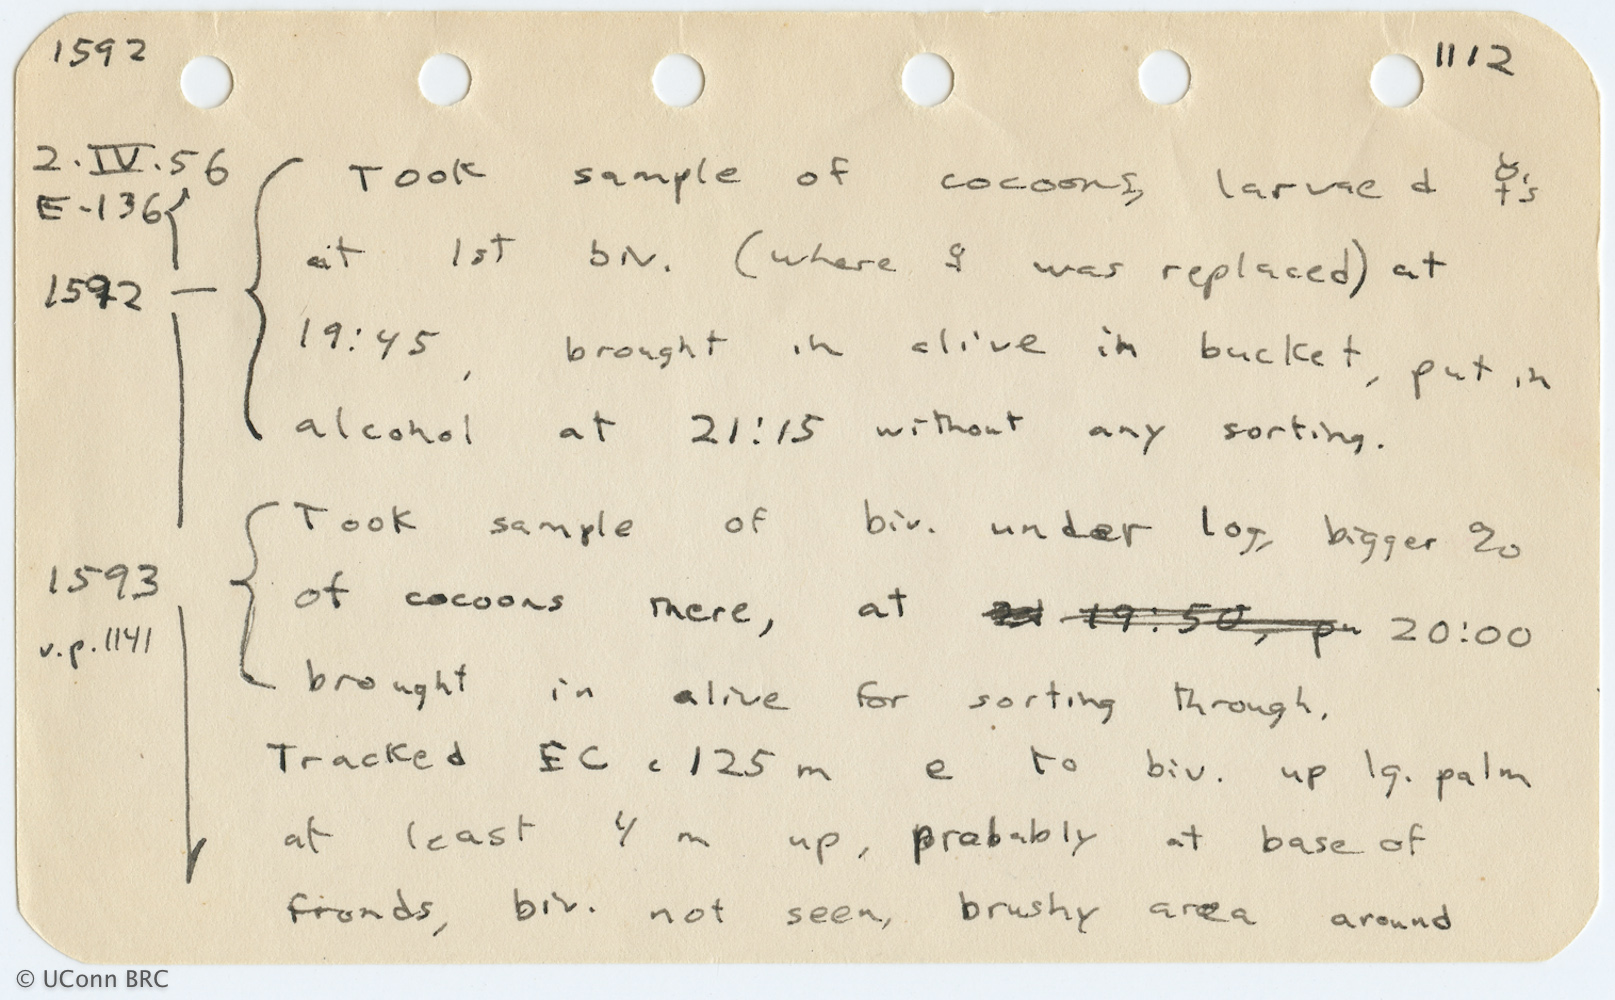 1592 1112
2.IV.56
E-136
1592
Took sample of cocoons, larvae d ☿'s
at 1st biv. (where ♀ was replaced) at
19:45, brought in alive in bucket, put in
alcohol at 21:15 without any sorting.
1593
v.p. 1141
Took sample of biv. under log, bigger %
of cocoons there, at 19:50, pu 20:00
brought in alive for sorting through.
Tracked EC c 125 m e to biv. up lg. palm
at least 4 m up, probably at base of
fronds, biv. not seen, brushy area around
© UConn BRC